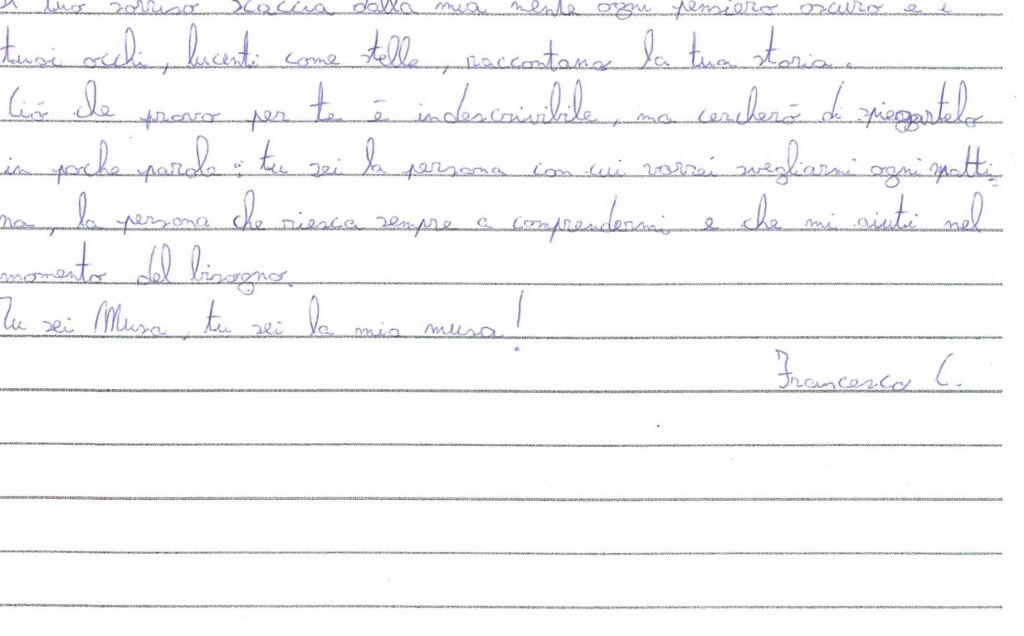 Il tuo sorriso scaccia dalla mia mente ogni pensiero oscuro e i
tuoi occhi, lucenti come stelle, raccontano la tua storia.
Ciò che provo per te è indescrivibile, ma cercherò di spiegartelo
in poche parole: tu sei la persona con cui vorrei svegliarmi ogni matti=
na, la persona che riesca sempre a comprendermi e che mi aiuti nel
momento del bisogno.
Tu sei Musa, tu sei la mia musa!
Francesca C.